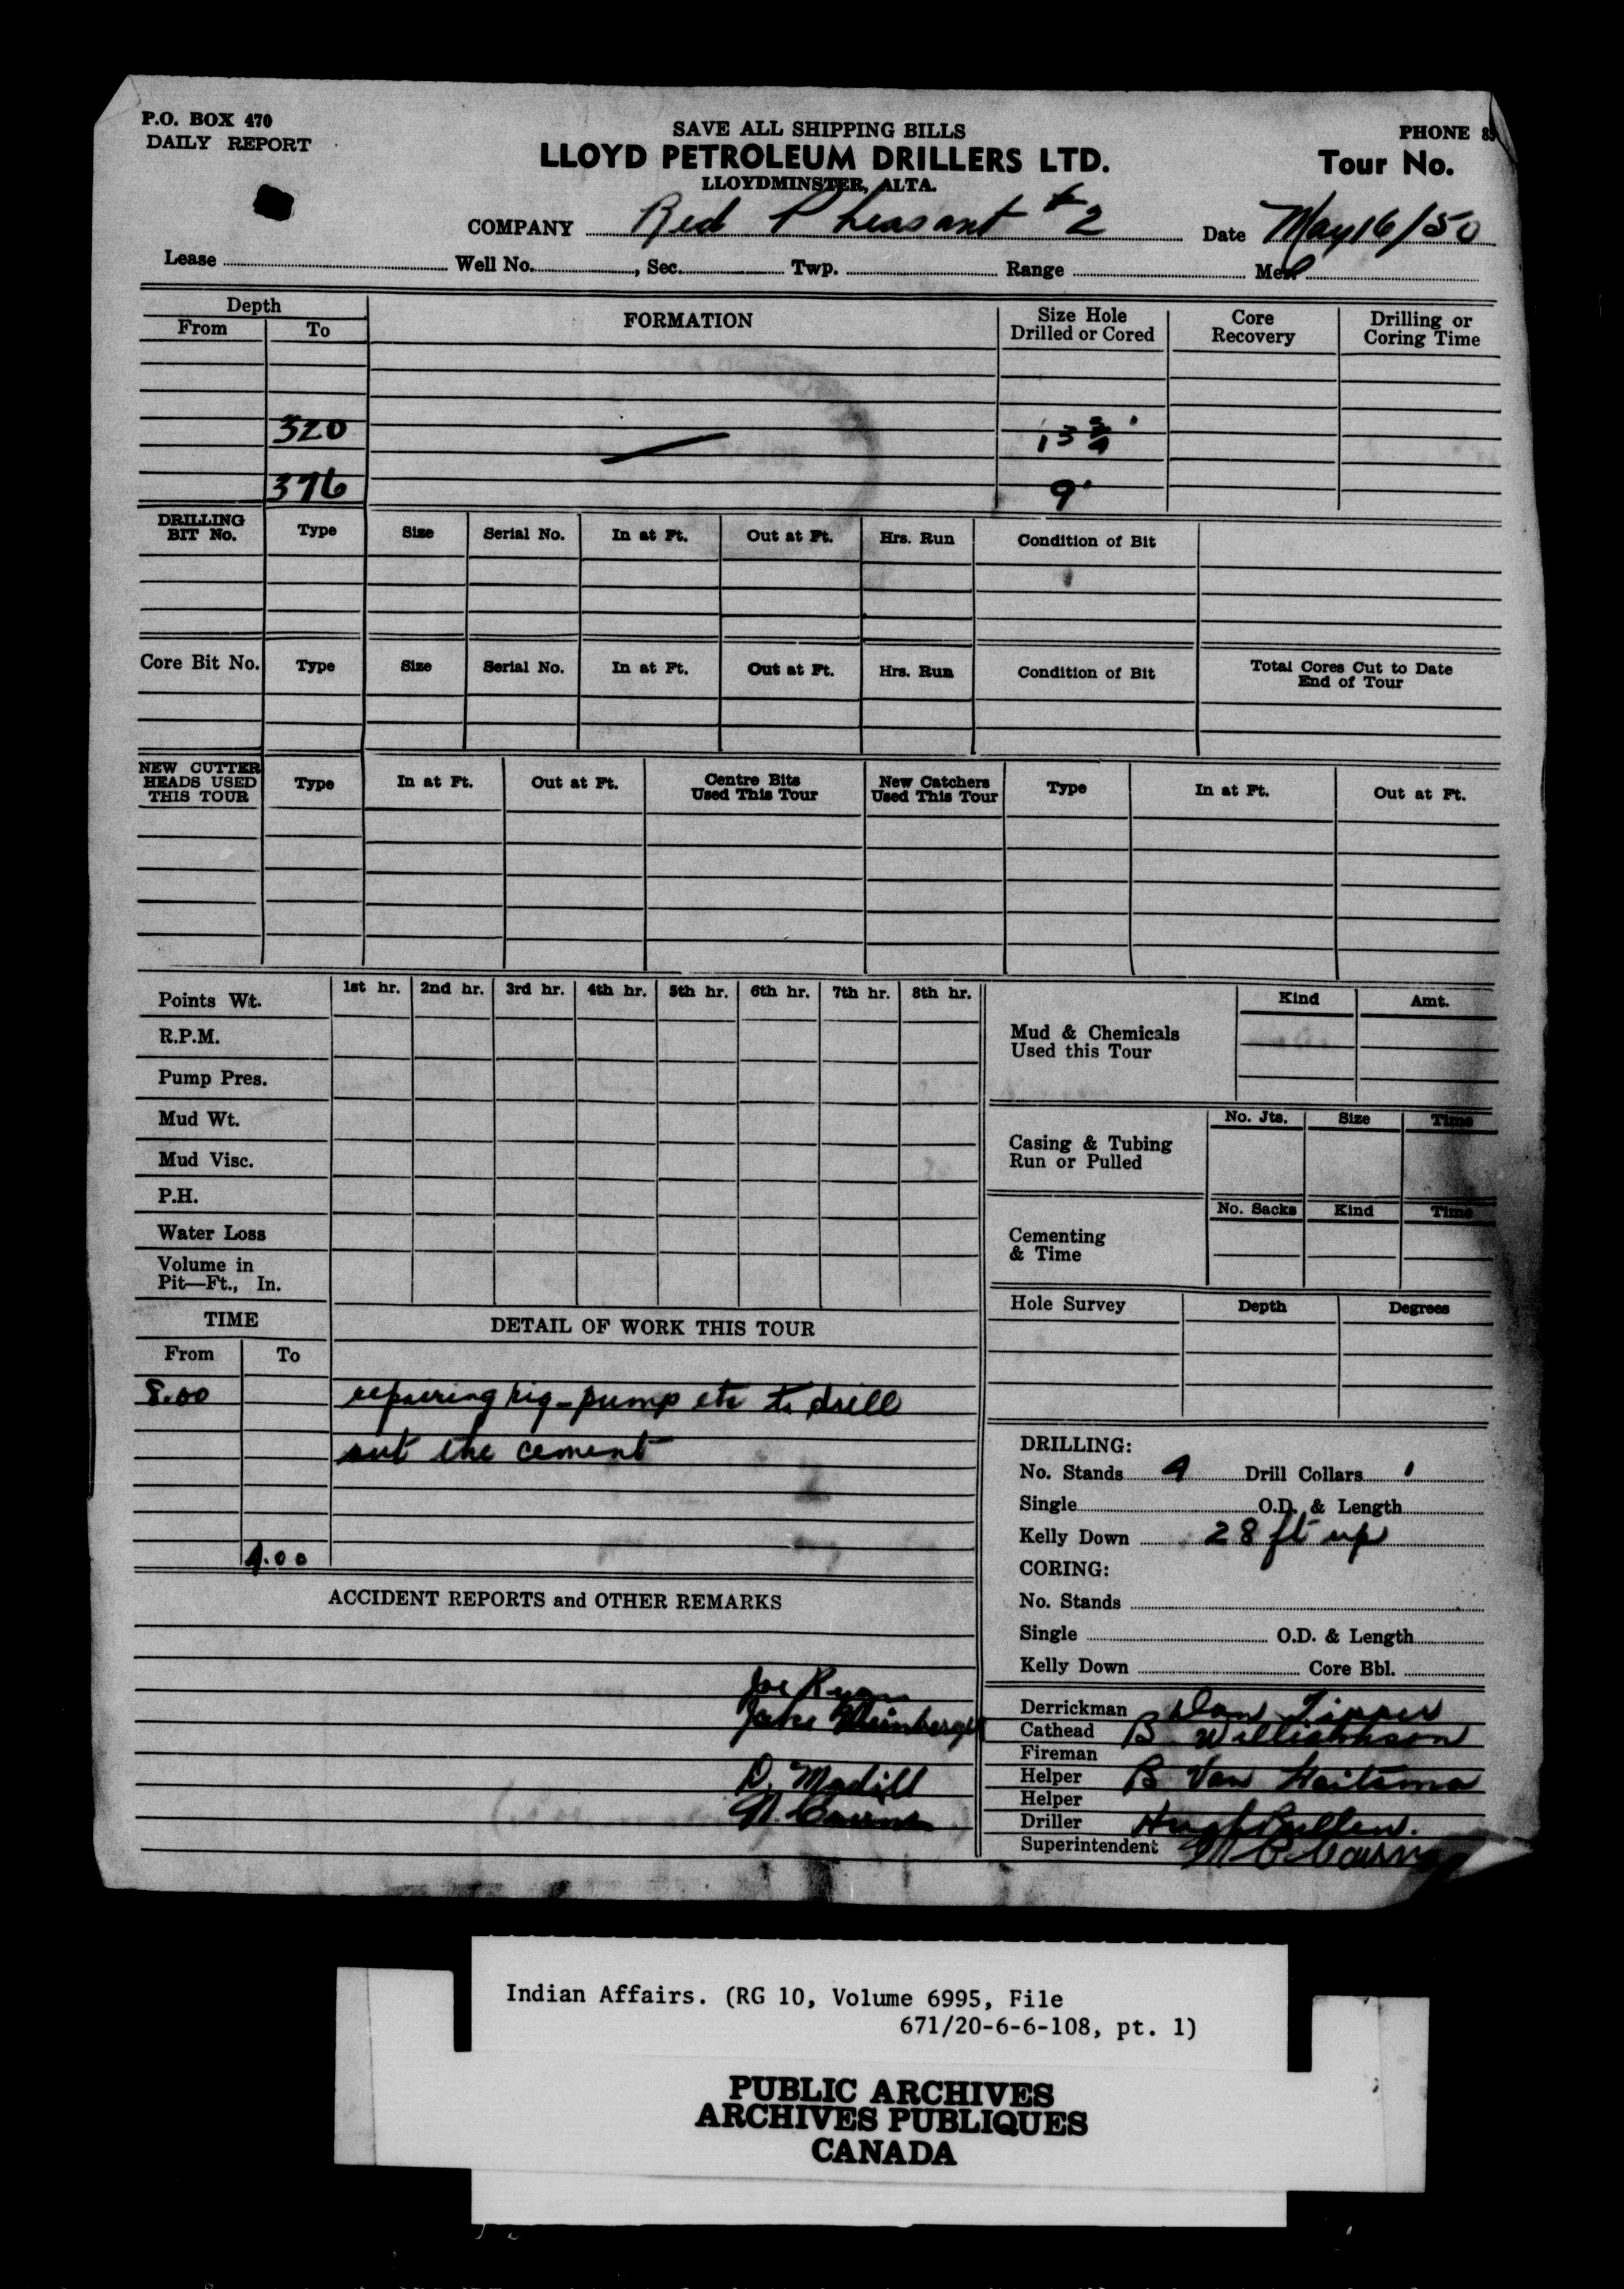 P.O. BOX 470
DAILY REPORT
SAVE ALL SHIPPING BILLS
LLOYD PETROLEUM DRILLERS LTD.
LLOYDMINSTER, ALTA.
PHONE
Tour No.
COMPANY Red Pheasant #2 Date May 16/50
Lease Well No. , Sec. Twp. Range Mer.
Depth FORMATION Size Hole Drilled or Cored Core Recovery Drilling or Coring Time
From To
320 13 3/4"
376 9"
DRILLING BIT No. Type Size Serial No. In at Ft. Out at Ft. Hrs. Run Condition of Bit
Core Bit No. Type Size Serial No. In at Ft. Out at Ft. Hrs. Run Condition of Bit Total Cores Cut to Date End of Tour
NEW CUTTER HEADS USED THIS TOUR Type In at Ft. Out at Ft. Centre Bits Used This Tour New Catchers Used This Tour Type In at Ft. Out at Ft.
Points Wt. 1st hr. 2nd hr. 3rd hr. 4th hr. 5th hr. 6th hr. 7th hr. 8th hr.
R.P.M.
Pump Pres.
Mud Wt.
Mud Visc.
P.H.
Water Loss
Volume in
Pit—Ft., In.
TIME DETAIL OF WORK THIS TOUR
From To
8.00 repairing rig - pump etc to drill
out the cement
4.00
ACCIDENT REPORTS and OTHER REMARKS
Joe Ryan
Jake Weinberger
D. Madill
N. Cairns
Mud & Chemicals Used this Tour Kind Amt.
Casing & Tubing Run or Pulled No. Jts. Size Time
Cementing & Time No. Sacks Kind Time
Hole Survey Depth Degrees
DRILLING:
No. Stands 4 Drill Collars 1
Single O.D. & Length
Kelly Down 28 ft up
CORING:
No. Stands
Single O.D. & Length
Kelly Down Core Bbl.
Derrickman Dan Tipper
Cathead B. Williamson
Fireman
Helper B Van Haitsma
Helper
Driller Hugh Bullen.
Superintendent
Indian Affairs. (RG 10, Volume 6995, File
671/20-6-6-108, pt. 1)
PUBLIC ARCHIVES
ARCHIVES PUBLIQUES
CANADA